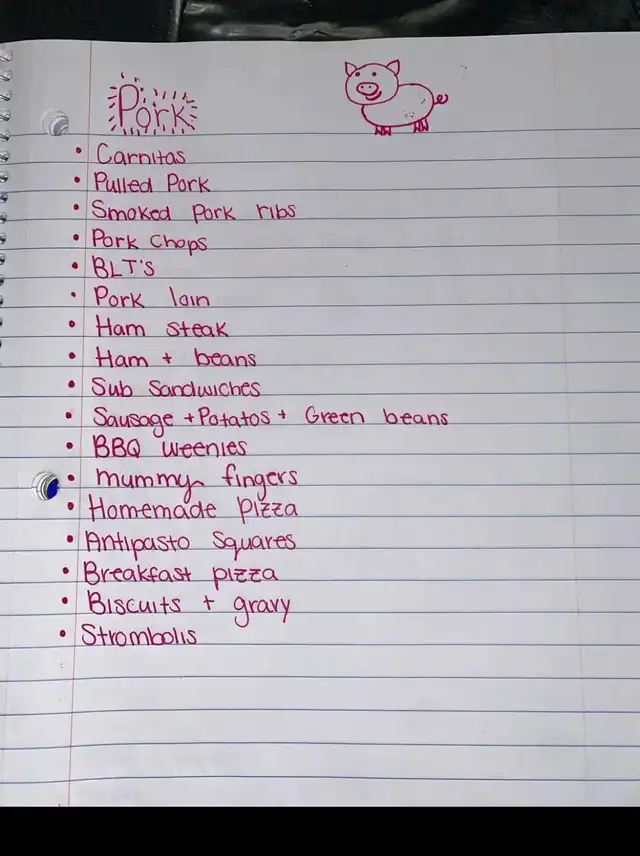 Pork
• Carnitas
• Pulled Pork
• Smoked Pork ribs
• Pork Chops
• BLT'S
• Pork loin
• Ham steak
• Ham + beans
• Sub Sandwiches
• Sausage + Potatos + Green beans
• BBQ weenies
• mummy fingers
• Homemade pizza
• Antipasto Squares
• Breakfast pizza
• Biscuits + gravy
• Strombolis